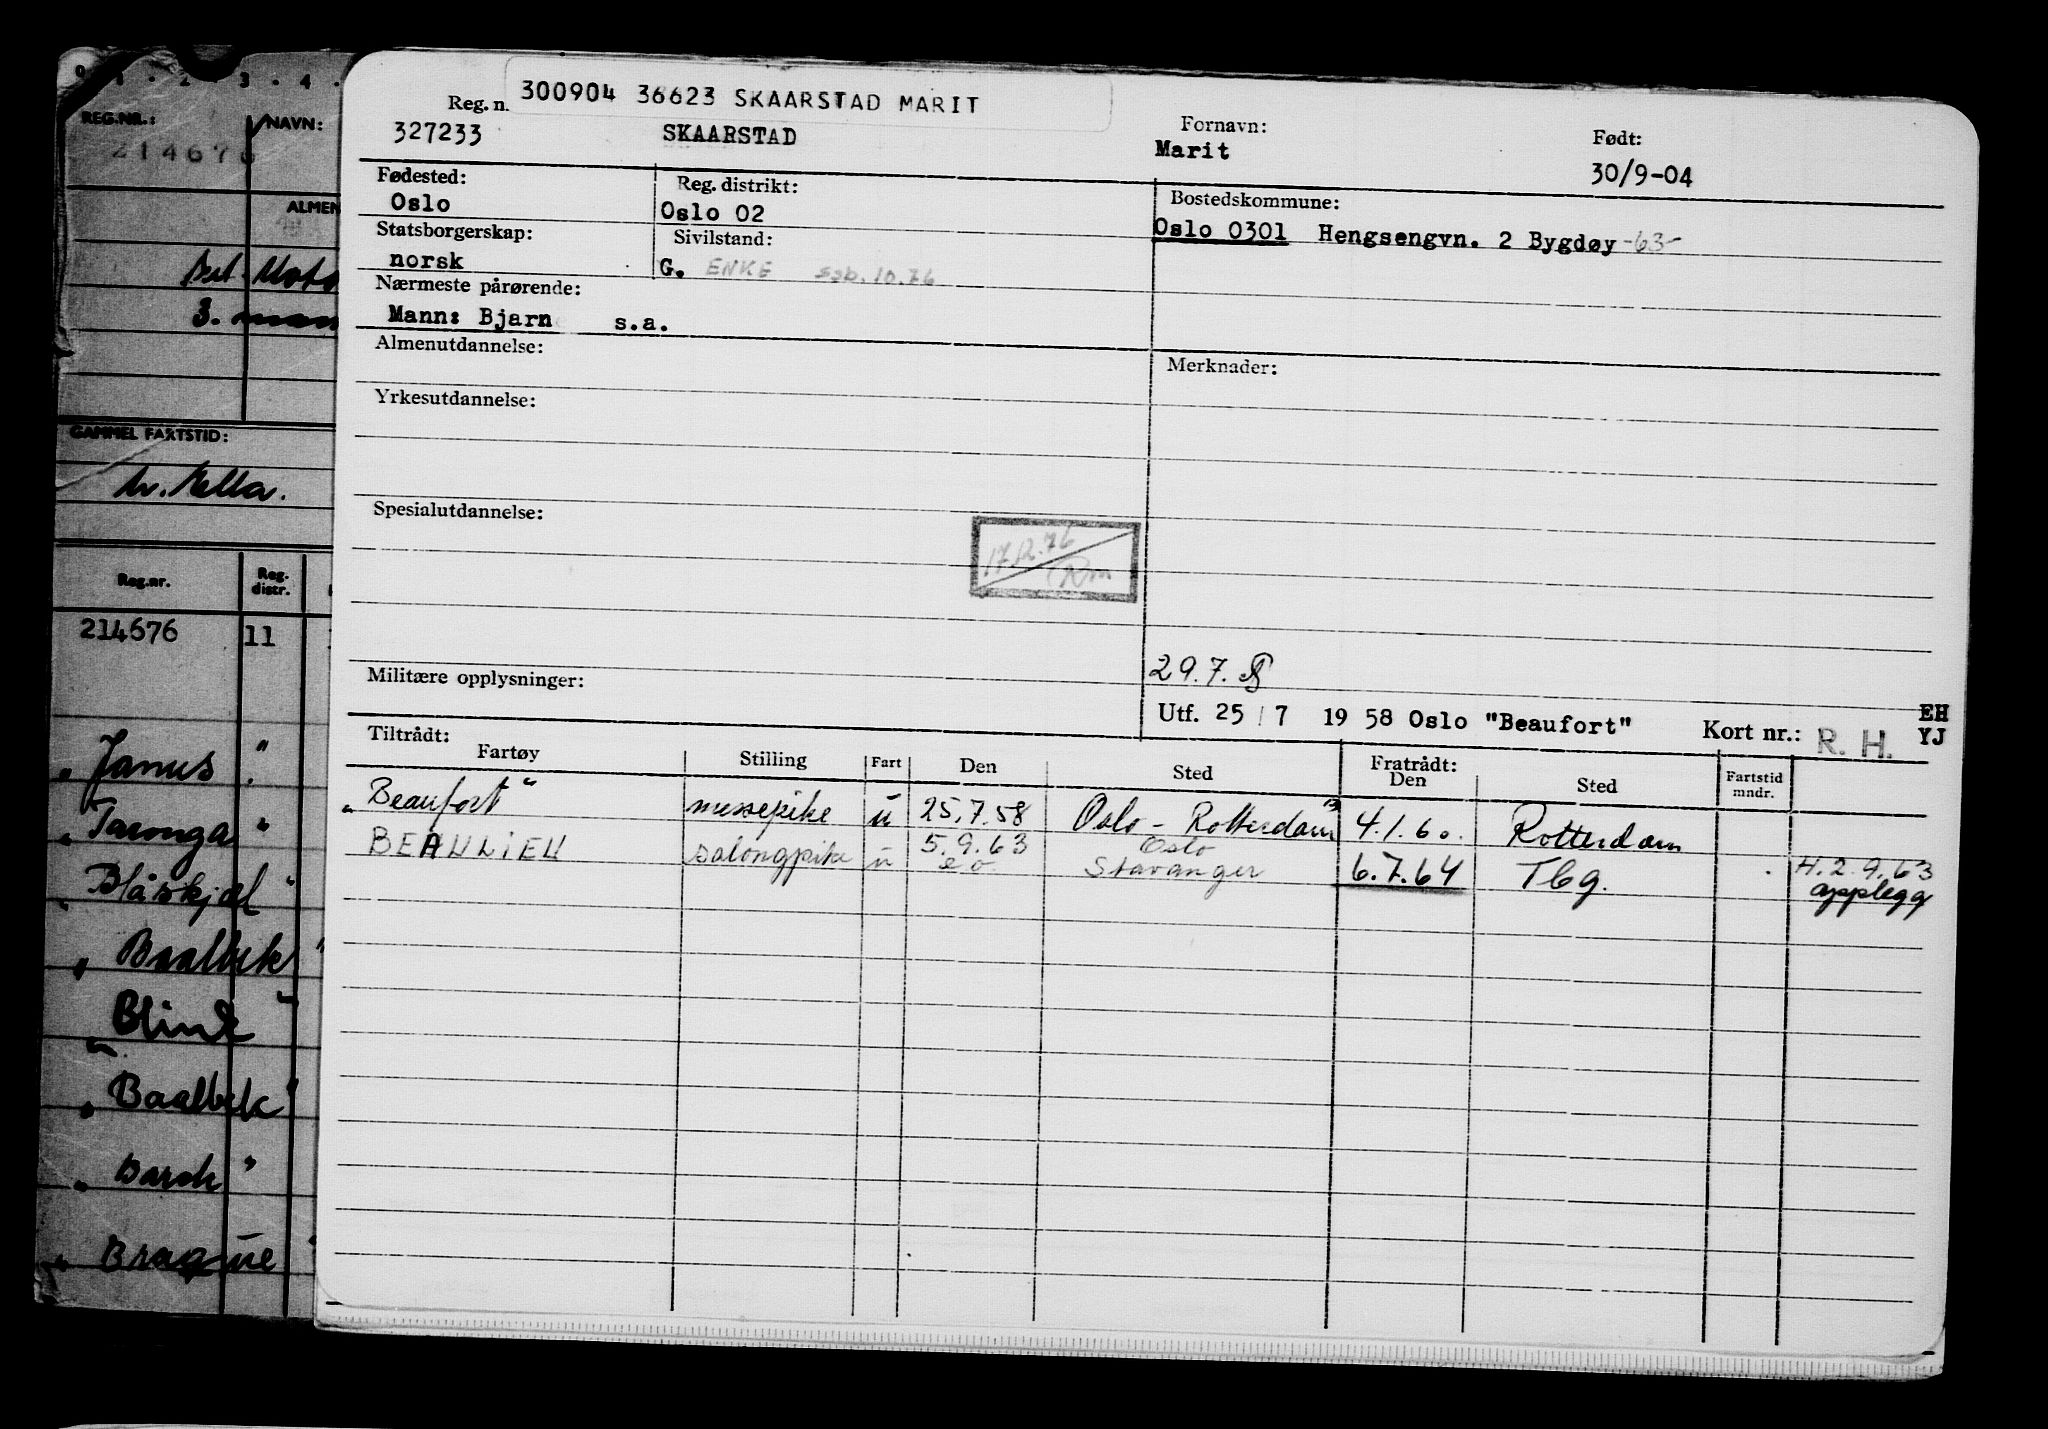 0 1 . 2 . 3 . 4 .
REG.NR.: NAVN:
214676
ALMEN
3. mann
GAMMEL FARTSTID:
Reg.nr. Reg. distr.
214676 11
"Janus"
"Taronga"
"Blåskjel"
"Baalbek"
"Blink"
"Baalbek"
"Barok"
"Braque"
300904 36623 SKAARSTAD MARIT
Reg. n. Fornavn: Født:
327233 SKAARSTAD Marit 30/9-04
Fødested: Reg. distrikt: Bostedskommune:
Oslo Oslo 02 Oslo 0301 Hengsengvn. 2 Bygdøy -63-
Statsborgerskap: Sivilstand:
norsk G. ENKE ssb. 10.76
Nærmeste pårørende:
Mann: Bjarn s.a.
Almenutdannelse: Merknader:
Yrkesutdannelse:
Spesialutdannelse:
17/12.76
Rm
29.7.
Militære opplysninger:
Utf. 25/7 1958 Oslo "Beaufort" Kort nr.: R. H. EH
YJ
Tiltrådt: Fartøy Stilling Fart Den Sted Fratrådt: Den Sted Fartstid mndr.
"Beaufort" messepike u 25.7.58 Oslo - Rotterdam 4.1.60. Rotterdam
BEAULIEU salongpike u 5.9.63 Oslo
e o Stavanger 6.7.64 Tbg. H. 2.9.63
opplegg